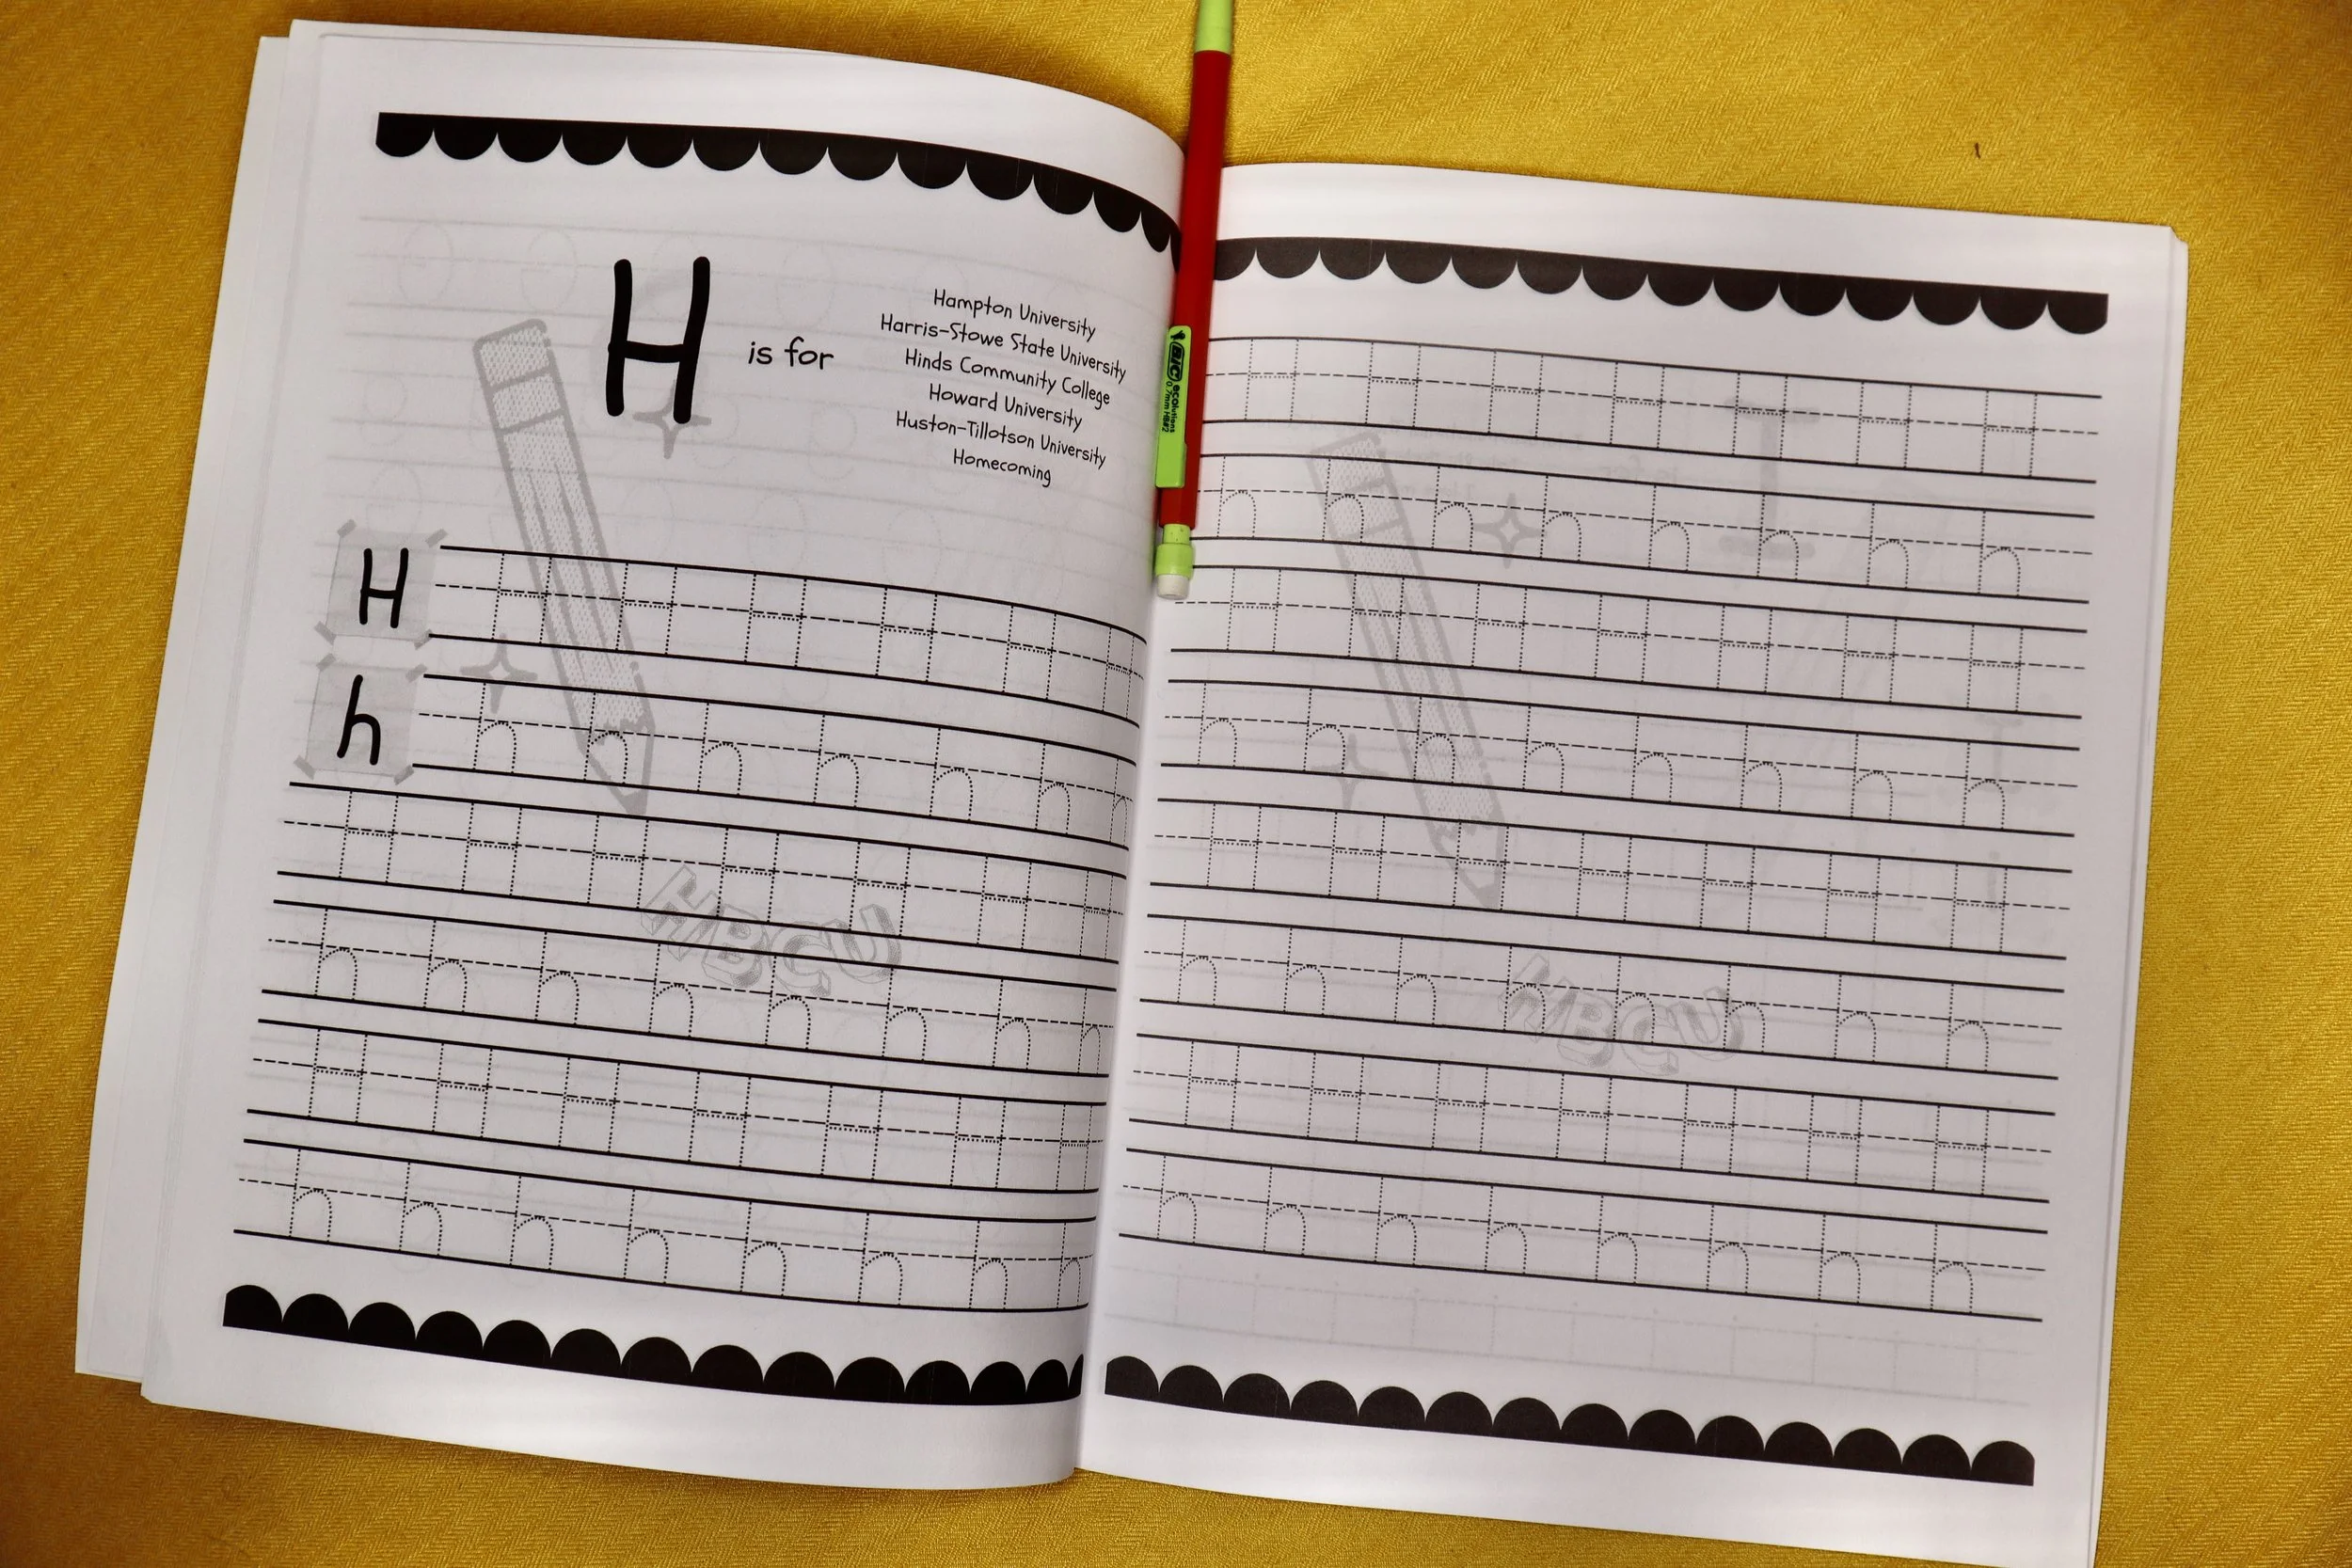 H
is for
Hampton University
Harris-Stowe State University
Hinds Community College
Howard University
Huston-Tillotson University
Homecoming
H H H H H H H
h h h h h h h h
H H H H H H H
h h h h h h h h
H H H H H H H
h h h h h h h h
HBCU
BIC
ecolutions
0.7mm HB#2
H H H H H H H
h h h h h h h h
H H H H H H H
h h h h h h h h
H H H H H H H
h h h h h h h h
H H H H H H H
h h h h h h h h
HBCU